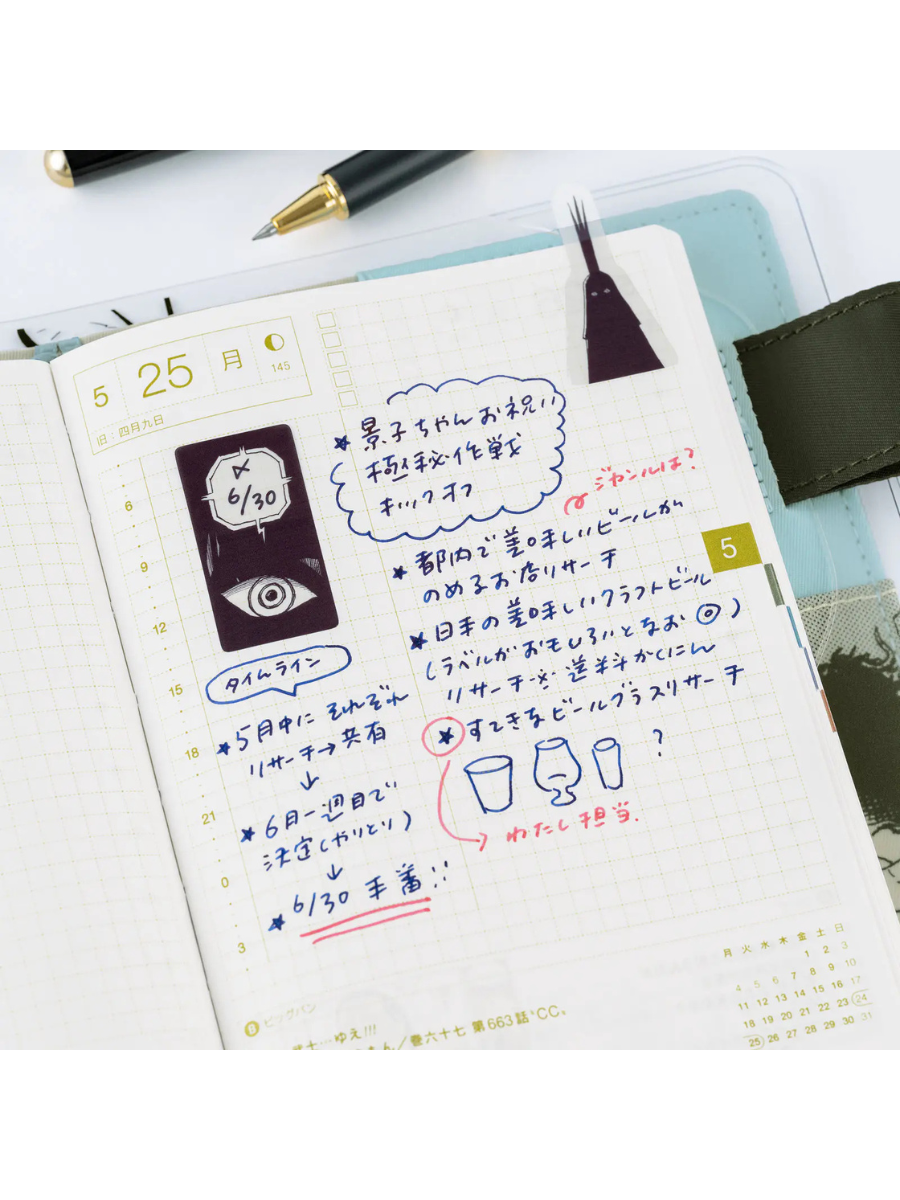 5 25 月
145
旧：四月九日
6
9
12
15
18
21
0
3
〆
6/30
タイムライン
★ 5月中に それぞれ
リサーチ→共有
↓
★ 6月一週目で
決定(やりとり)
↓
★ 6/30 手番!!
★ 景子ちゃんお祝い
極秘作戦
キックオフ
ジャンルは?
★ 都内で美味しいビールが
のめるお店リサーチ
★ 日本の美味しいクラフトビール
(ラベルがおもしろいとなお◎)
リサーチ※送料かくにん
★ すてきなビールグラスリサーチ
?
わたし担当.
5
月 火 水 木 金 土 日
1 2 3
4 5 6 7 8 9 10
11 12 13 14 15 16 17
18 19 20 21 22 23 24
25 26 27 28 29 30 31
ビッグバン
…ゆえ!!!
／巻六十七 第663話"CC。